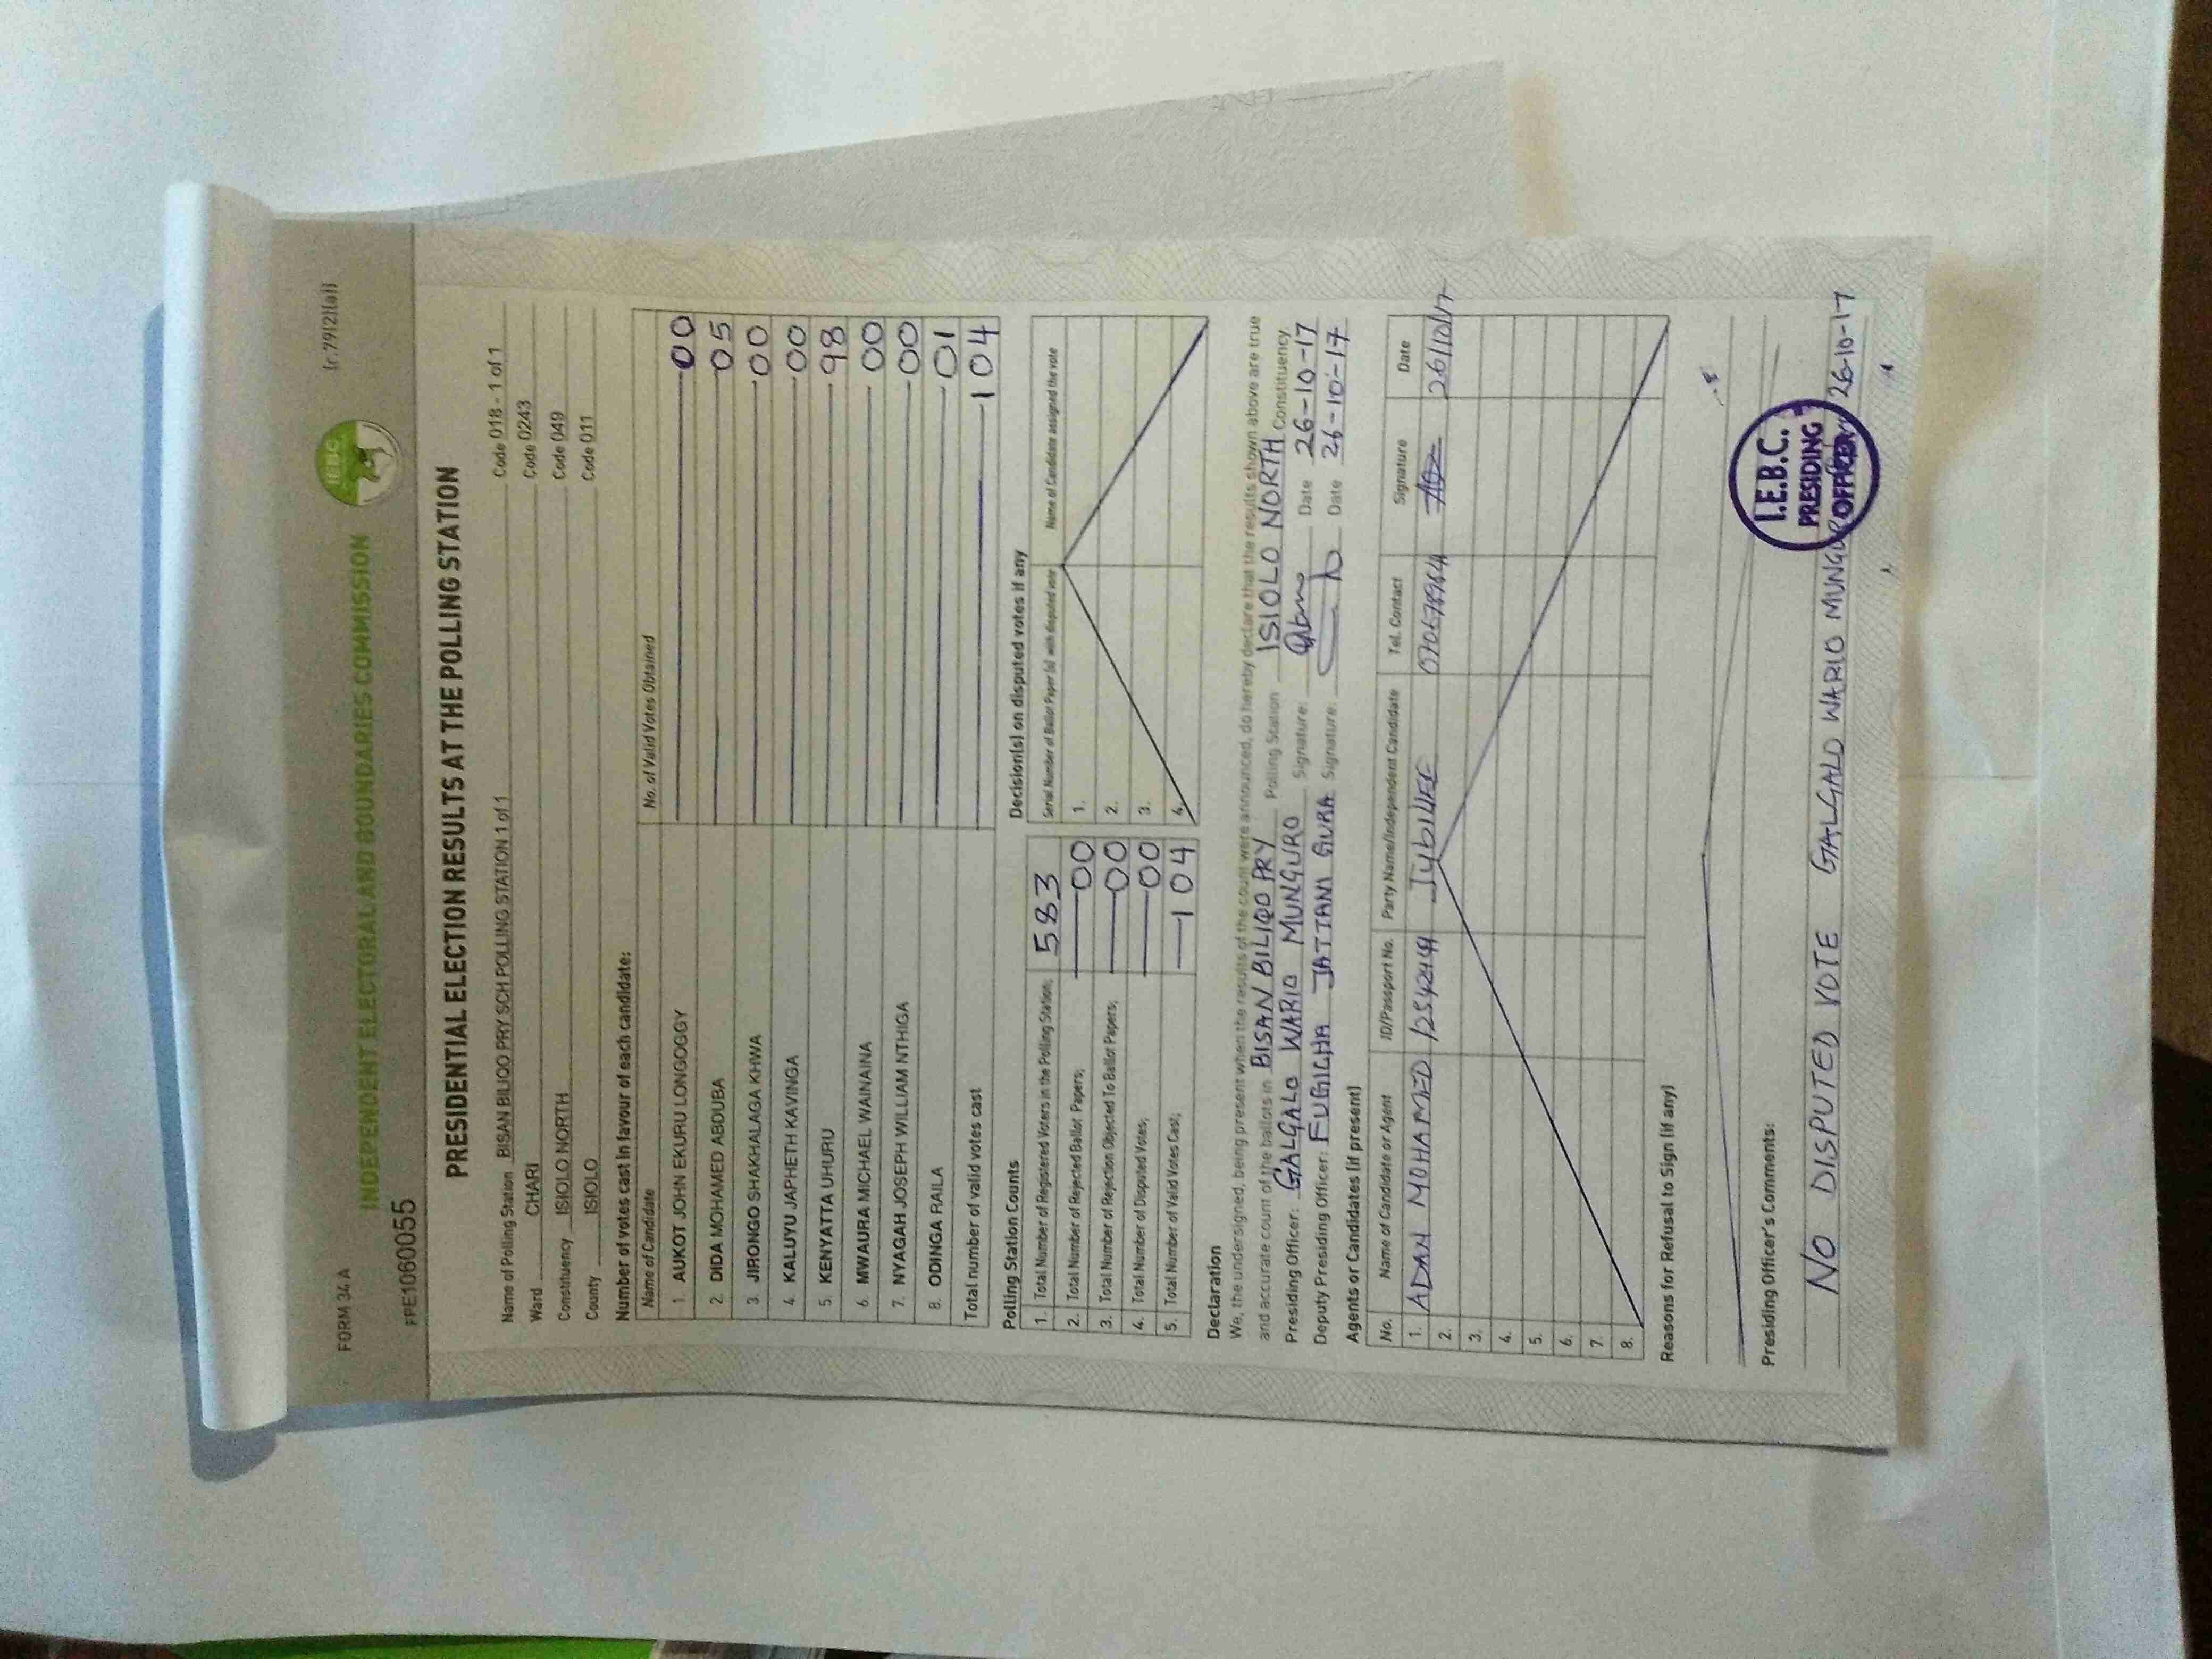 FORM 34 A
(r.79(2)(a))
IEBC
INDEPENDENT ELECTORAL AND BOUNDARIES COMMISSION
FPE1060055
PRESIDENTIAL ELECTION RESULTS AT THE POLLING STATION
Name of Polling Station BISAN BILIQO PRY SCH POLLING STATION 1 of 1 Code 018 - 1 of 1
Ward CHARI Code 0243
Constituency ISIOLO NORTH Code 049
County ISIOLO Code 011
Number of votes cast in favour of each candidate:
Name of Candidate No. of Valid Votes Obtained
1. AUKOT JOHN EKURU LONGOGGY 00
2. DIDA MOHAMED ABDUBA 05
3. JIRONGO SHAKHALAGA KHWA 00
4. KALUYU JAPHETH KAVINGA 00
5. KENYATTA UHURU 98
6. MWAURA MICHAEL WAINAINA 00
7. NYAGAH JOSEPH WILLIAM NTHIGA 00
8. ODINGA RAILA 01
Total number of valid votes cast 104
Polling Station Counts
1. Total Number of Registered Voters in the Polling Station; 583
2. Total Number of Rejected Ballot Papers; 00
3. Total Number of Rejection Objected To Ballot Papers; 00
4. Total Number of Disputed Votes; 00
5. Total Number of Valid Votes Cast; 104
Decision(s) on disputed votes if any
Serial Number of Ballot Paper (s) with disputed vote Name of Candidate assigned the vote
1.
2.
3.
4.
Declaration
We, the undersigned, being present when the results of the count were announced, do hereby declare that the results shown above are true
and accurate count of the ballots in BISAN BILIQO PRY Polling Station ISIOLO NORTH Constituency.
Presiding Officer: GALGALO WARIO MUNGURO Signature: Date 26-10-17
Deputy Presiding Officer: FUGICHA JATTANI GURA Signature: Date 26-10-17
Agents or Candidates (if present)
No. Name of Candidate or Agent ID/Passport No. Party Name/Independent Candidate Tel. Contact Signature Date
1. ADAN MOHAMED Jubilee 26/10/17
2.
3.
4.
5.
6.
7.
8.
Reasons for Refusal to Sign (if any)
Presiding Officer's Comments:
NO DISPUTED VOTE GALGALO WARIO MUNGURO 26-10-17
I.E.B.C.
PRESIDING
OFFICER